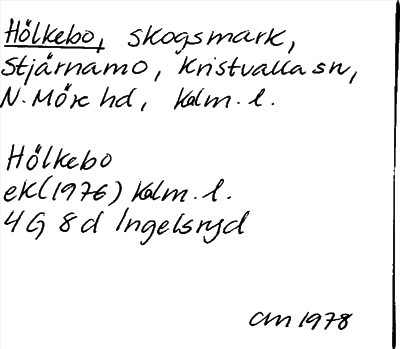 Hölkebo, skogsmark,
Stjärnamo, Kristvalla sn,
N. Möre hd, Kalm. l.
Hölkebo
ek (1976) Kalm. l.
4G 8d Ingelsryd
CM 1978